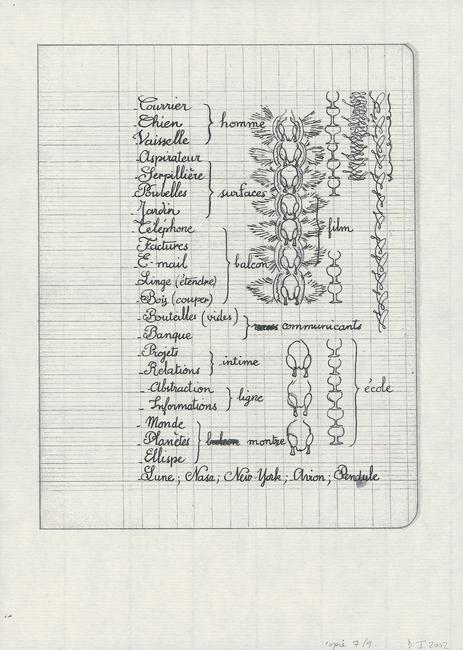 Courrier
Chien
Vaisselle
homme
Aspirateur
Serpillière
Poubelles
Jardin
surfaces
Téléphone
Factures
E-mail
Linge (étendre)
Bois (couper)
balcon
film
Bouteilles (vides)
Banque
communicants
Projets
Relations
intime
Abstraction
Informations
ligne
école
Monde
Planètes
Ellispe
montre
Lune ; Nasa ; New-York ; Avion ; Pendule
copie 7/9
2002